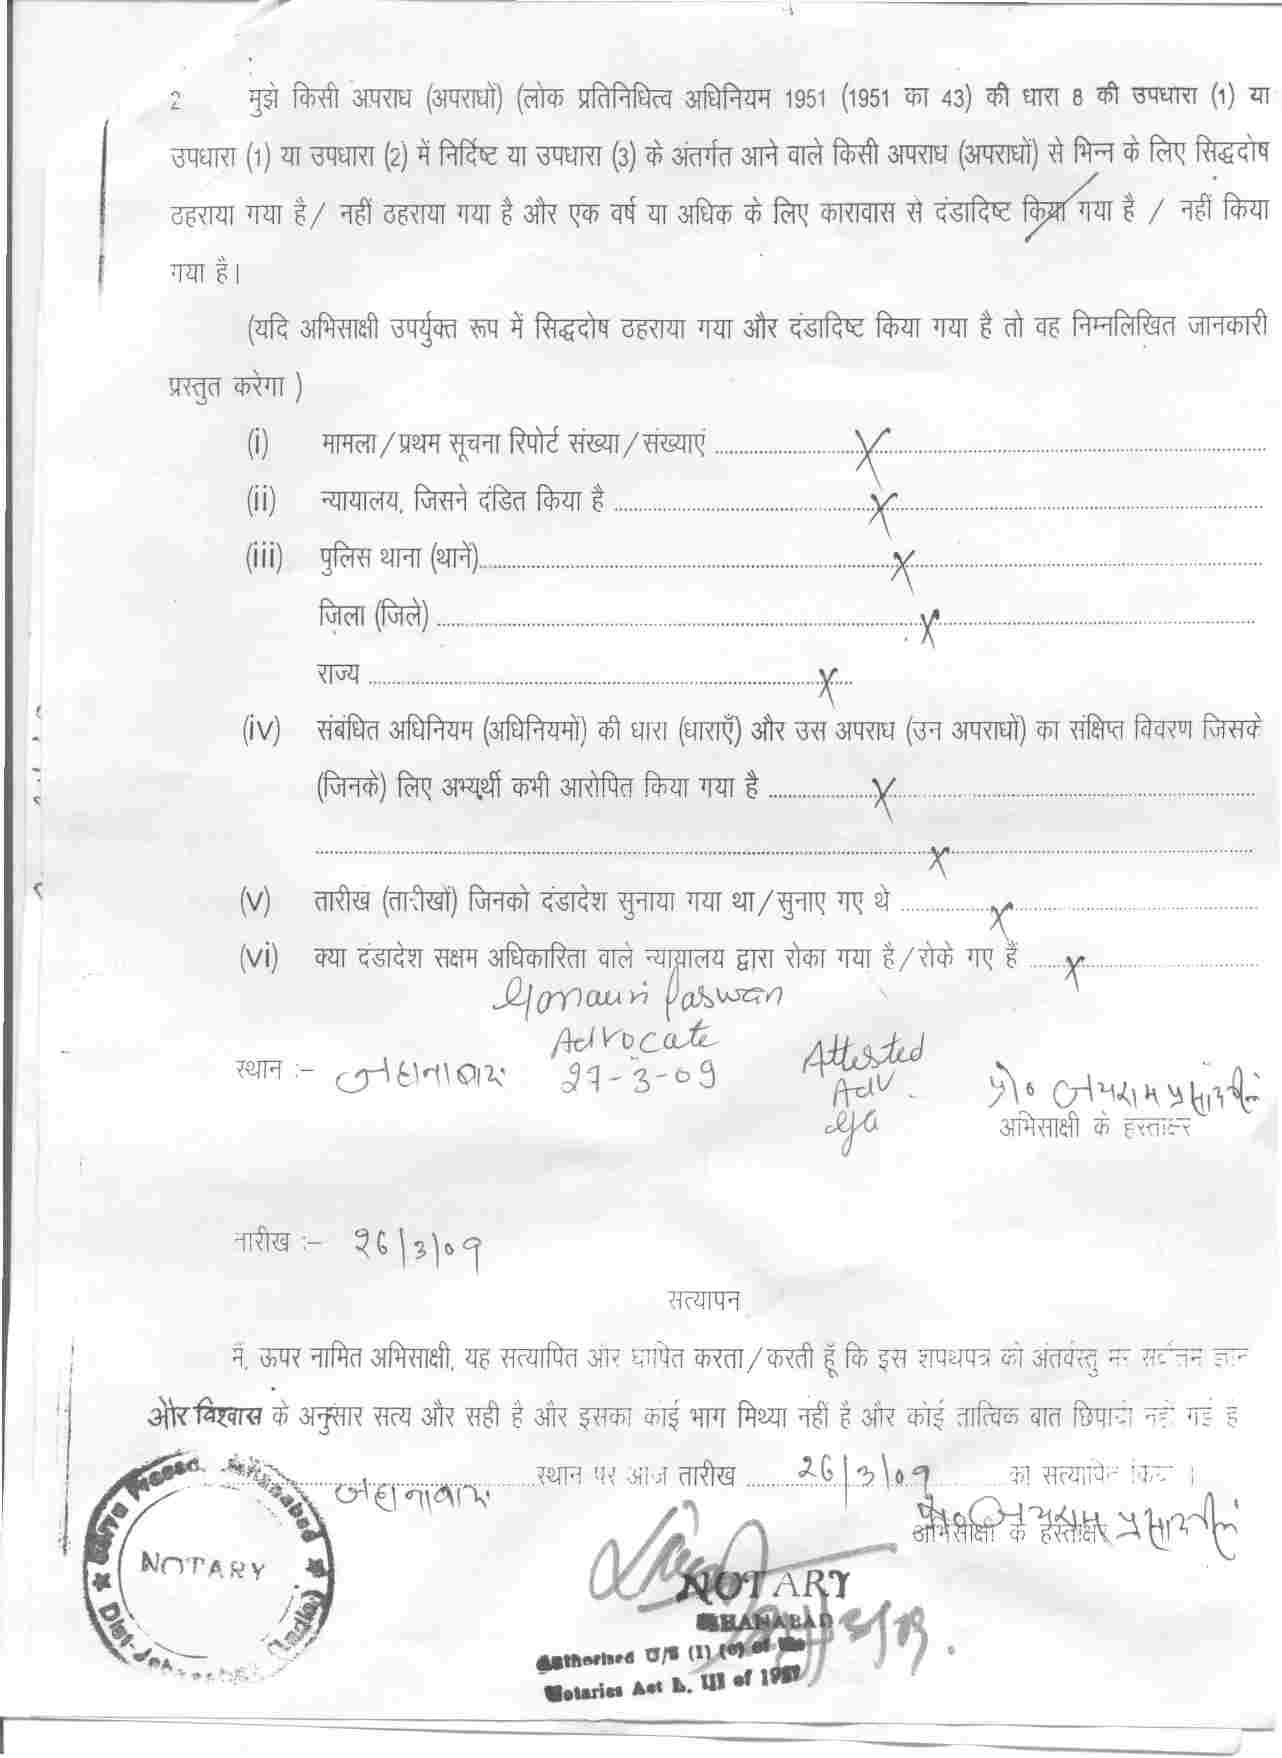 2 मुझे किसी अपराध (अपराधों) (लोक प्रतिनिधित्व अधिनियम 1951 (1951 का 43) की धारा 8 की उपधारा (1) या
उपधारा (1) या उपधारा (2) में निर्दिष्ट या उपधारा (3) के अंतर्गत आने वाले किसी अपराध (अपराधों) से भिन्न के लिए सिद्धदोष
ठहराया गया है / नहीं ठहराया गया है और एक वर्ष या अधिक के लिए कारावास से दंडादिष्ट किया गया है / नहीं किया
गया है।
(यदि अभिसाक्षी उपर्युक्त रूप में सिद्धदोष ठहराया गया और दंडादिष्ट किया गया है तो वह निम्नलिखित जानकारी
प्रस्तुत करेगा )
(i) मामला/प्रथम सूचना रिपोर्ट संख्या/संख्याएं X
(ii) न्यायालय, जिसने दंडित किया है X
(iii) पुलिस थाना (थानें) X
ज़िला (जिले) X
राज्य X
(iv) संबंधित अधिनियम (अधिनियमों) की धारा (धाराएँ) और उस अपराध (उन अपराधों) का संक्षिप्त विवरण जिसके
(जिनके) लिए अभ्यर्थी कभी आरोपित किया गया है X
X
(v) तारीख (तारीखों) जिनको दंडादेश सुनाया गया था/सुनाए गए थे X
(vi) क्या दंडादेश सक्षम अधिकारिता वाले न्यायालय द्वारा रोका गया है/रोके गए हैं X
Gonauri Paswan
Advocate
27-3-09
Attested
Adv.
स्थान :- जहानाबाद
प्रो० जयराम प्रसाद
अभिसाक्षी के हस्ताक्षर
तारीख :- 26/3/09
सत्यापन
में, ऊपर नामित अभिसाक्षी, यह सत्यापित और घोषित करता/करती हूँ कि इस शपथपत्र की अंतर्वस्तु मेरे सर्वोत्तम ज्ञान
और विश्वास के अनुसार सत्य और सही है और इसका कोई भाग मिथ्या नहीं है और कोई तात्विक बात छिपायी नहीं गई है
जहानाबाद स्थान पर आज तारीख 26/3/09 को सत्यापित किया।
प्रो० जयराम प्रसाद
अभिसाक्षी के हस्ताक्षर
NOTARY
NOTARY
JEHANABAD
Authorised U/S (1) (e) of the
Notaries Act L. III of 1952